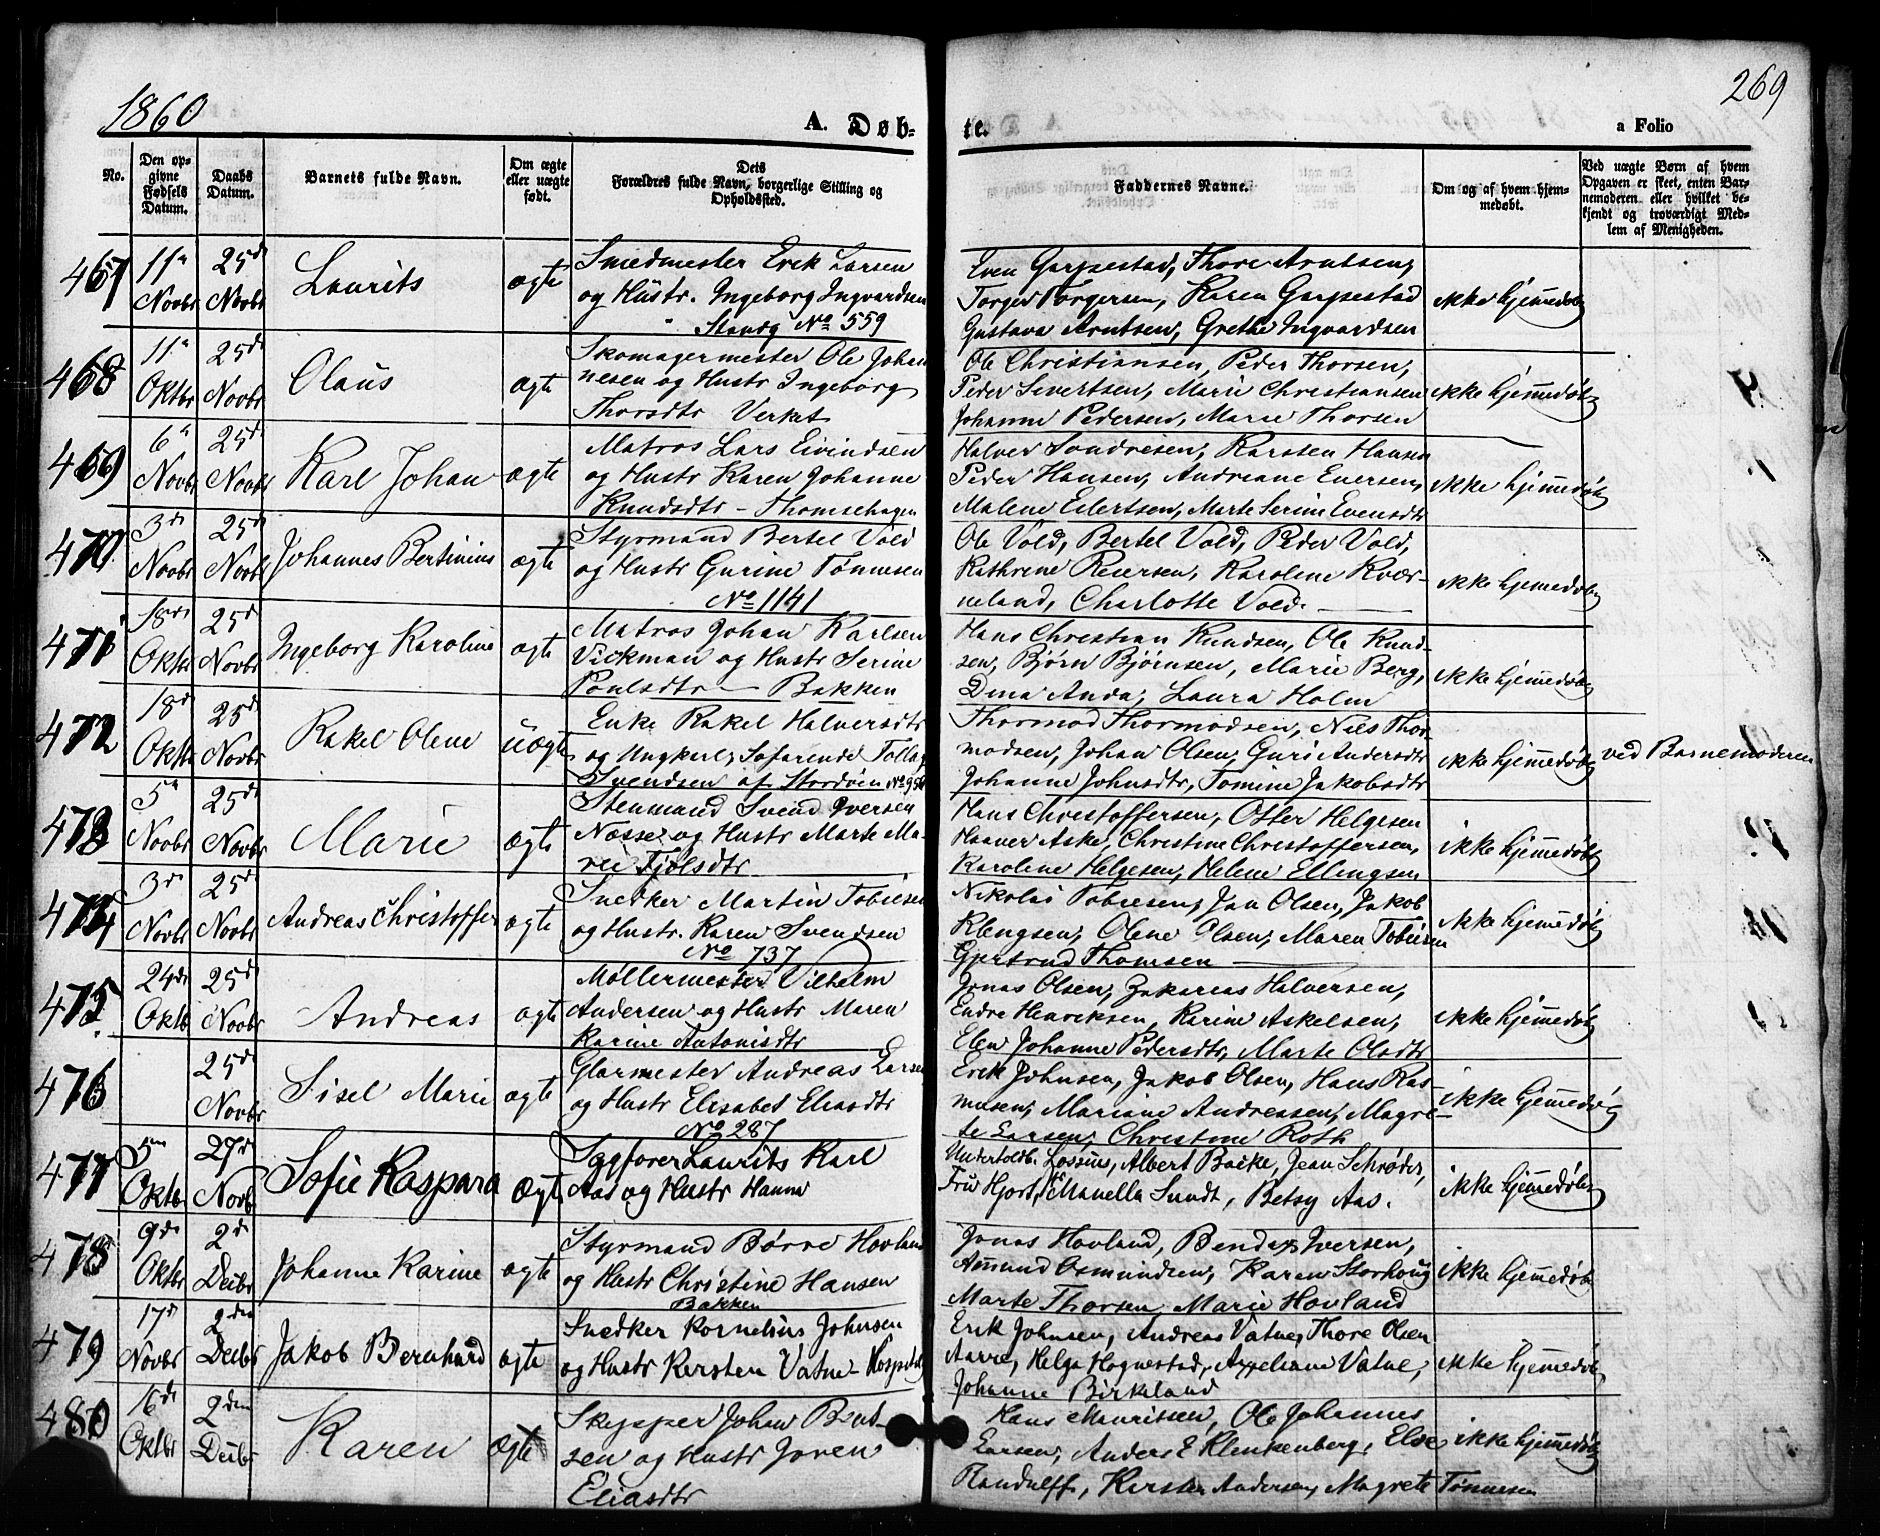 1860
A. Døb-
te.
a Folio
269
No.
Den op-
givne
Fødsels
Datum.
Daabs
Datum.
Barnets fulde Navn.
Om ægte
eller uægte
født.
Dets
Forældres fulde Navn, borgerlige Stilling og
Opholdssted.
Faddernes Navne.
Om og af hvem hjem-
medøbt.
Ved uægte Børn af hvem
Opgaven er skeet, enten Bar-
nemoderen eller hvilket be-
kjendt og troværdigt Med-
lem af Menigheden.
467
11te
Novbr
25de
Novbr
Laurits
ægte
Smedmester Erik Larsen
og Hustr. Ingeborg Ingvardsen
No 559
Even Garpestad, Thore Arntsen,
Torger Torgersen, Karen Garpestad
Gustava Arntsen, Grethe Ingvardsen
ikke hjemmedøbt
468
11te
Oktbr
25de
Novbr
Olaus
ægte
Skomagermester Ole Johan-
nesen og Hustr Ingeborg
Thorsdtr Verket
Ole Christiansen, Peder Thorsen,
Peder Sivertsen, Marie Christiansen
Johanne Pedersen, Marie Thorsen
ikke hjemmedøbt
469
6te
Novbr
25de
Novbr
Karl Johan
ægte
Matros Lars Eivindsen
og Hustr Karen Johanne
Knudsdtr - Thomsehagen
Halver Sondresen, Karsten Hansen
Peder Hansen, Andreane Evensen,
Malene Eilertsen, Marte Serine Evensdtr
ikke hjemmedøbt
470
3de
Novbr
25de
Novbr
Johannes Bertinius
ægte
Styrmand Bertel Vold
og Hustr Gurine Tønnesen
No 1141
Ole Vold, Bertel Vold, Peder Vold,
Kathrine Reiersen, Karoline Kvær-
neland, Charlotte Vold.
ikke hjemmedøbt
471
18de
Oktbr
25de
Novbr
Ingeborg Karoline
ægte
Matros Johan Karlsen
Vickman og Hustr Serine
Poulsdtr - Bakken
Hans Christian Knudsen, Ole Knud-
sen, Bjørn Bjørnsen, Marie Berg,
Dina Anda, Laura Holm
ikke hjemmedøbt
472
18de
Oktbr
25de
Novbr
Rakel Oline
uægte
Enke Rakel Halversdtr
og Ungkarl, Søfarende Tollag
Svendsen af Stordøen No 95
Thormod Thormodsen, Nils Thor-
modsen, Johan Olsen, Guri Andersdtr
Johanne Johnsdtr, Tomine Jakobsdtr
ikke hjemmedøbt
ved Barnemoderen
473
5te
Novbr
25de
Novbr
Marie
ægte
Stenmand Svend Iversen
Næsse og Hustr Marte Ma-
rie Fjølsdtr
Hans Christoffersen, Otter Helgesen
Haaver Aske, Christine Christoffersen,
Karoline Helgesen, Helene Ellingsen
ikke hjemmedøbt
474
3de
Novbr
25de
Novbr
Andreas Christoffer
ægte
Snedker Martin Tobiesen
og Hustr. Karen Svendsen
No 737
Nikolai Tobiesen, Jan Olsen, Jakob
Klengsen, Oline Olsen, Maren Tobiesen
Gjertrud Thomsen
ikke hjemmedøbt
475
24de
Oktb
25de
Novbr
Andreas
ægte
Møllermester Vilhelm
Andersen og Hustr Maren
Karine Antonisdtr
Jonas Olsen, Zakarias Halversen,
Endre Henriksen, Karine Askelsen,
Elen Johanne Pedersdtr, Marte Olsdtr
ikke hjemmedøbt
476
25de
Novbr
Sisel Marie
ægte
Glarmester Andreas Larsen
og Hustr Elisabet Eliasdtr
No 287
Erik Johnsen, Jakob Olsen, Hans Ras-
musen, Mariane Andreassen, Magre-
te Larsen, Christine Roth
ikke hjemmedøbt
477
5te
Oktbr
27de
Novbr
Sofie Kaspara
Ægte
Sagfører Laurits Karl
Aas og Hustr Hanne
Undertoldb. Lossius, Albert Backe, Jean Schrøder,
Fru Hjort, Manella Sundt, Betsy Aas.
ikke hjemmedøbt
478
9de
Oktbr
2de
Decbr
Johanne Karine
ægte
Styrmand Børre Hovland
og Hustr Christine Hansen
Bakken
Jonas Hovland, Bendix Iversen,
Amund Osmundsen, Karen Storhoug
Marte Thorsen, Marie Hovland
ikke hjemmedøbt
479
17de
Novbr
2den
Decbr
Jakob Bernhard
ægte
Snedker Kornelius Johnsen
og Hustr Kersten Vatne - Hospital
Erik Johnsen, Andreas Vatne, Thore Olsen
Aarre, Helga Hognestad, Appeliane Vatne,
Johanne Birkeland
ikke hjemmedøbt
480
16de
Oktbr
2den
Decbr
Karen
Ægte
Skipper Johan Bent-
sen og Hustr Joren
Eliasdtr
Hans Mauritsen, Ole Johannes
Larsen, Anders E Klenkenberg, Else
Randulff, Kersten Andersen, Magrete Tønnesen
ikke hjemmedøbt